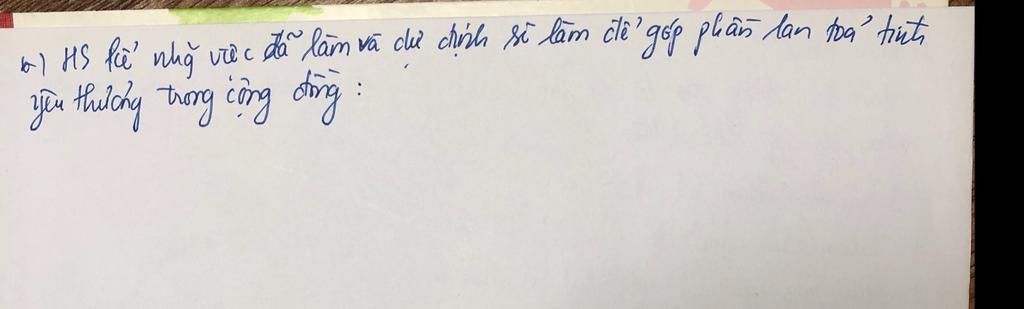 b) HS kể nhg việc đã làm và dự định sẽ làm để góp phần lan toả tình
yêu thương trong cộng đồng :